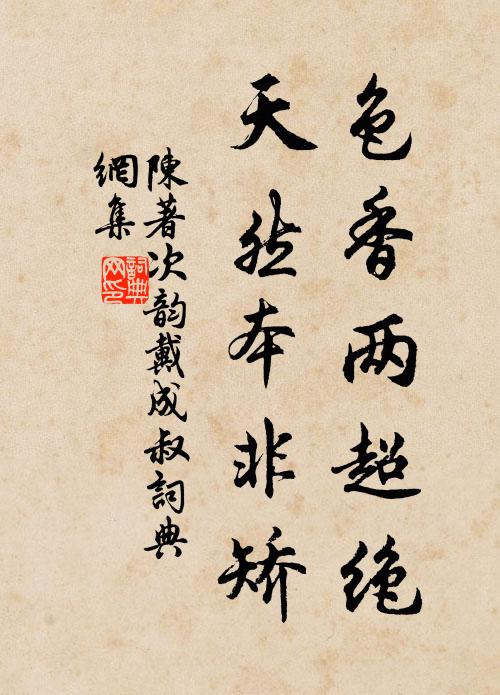 色香两超绝
天然本非矫
陳著次韵戴成叔詞典
網集
詞典
网印